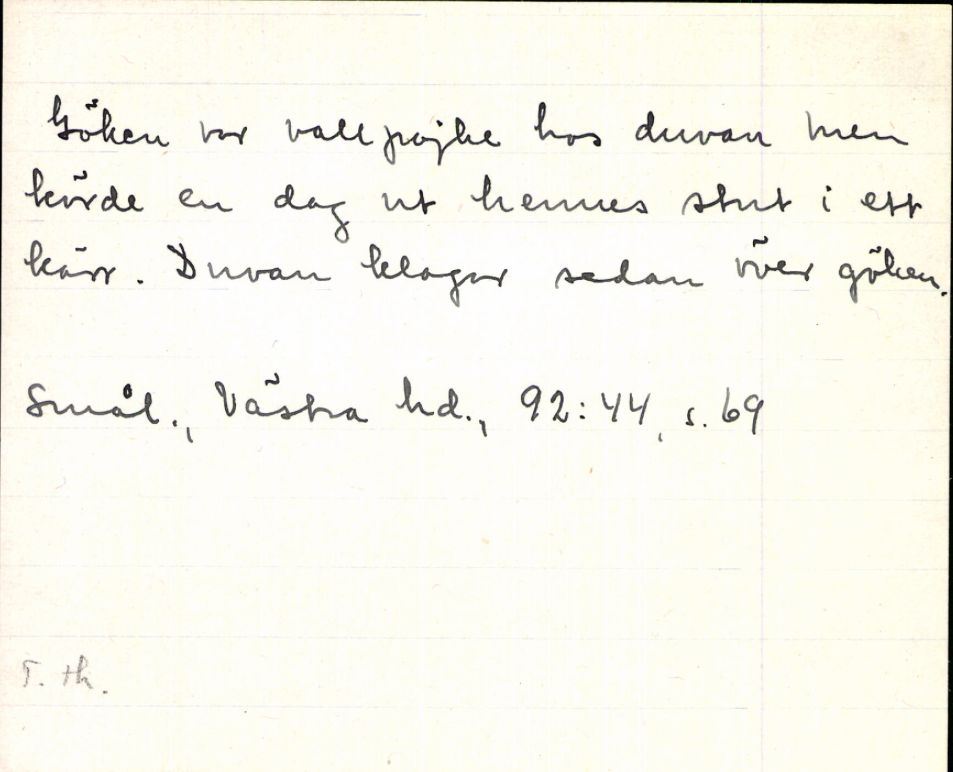 Göken var vallpojke hos duvan men
körde en dag ut hennes stut i ett
kärr. Duvan klagar sedan över göken.
Smål., Västra hd., 92:44, s. 69
T. th.